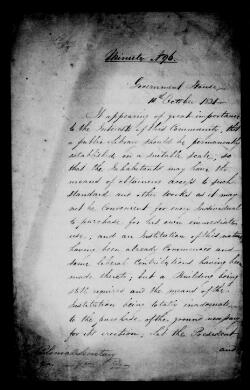 Minute No 96.
Government House
10th October 1836
It appearing of great importance
to the Interests of this Community, that
a public Library should be permanently
established in a suitable scale; so
that the Inhabitants may have the
means of obtaining access to such
standard and other works as it may
not be convenient for every Individual
to purchase for his own immediate
use; and an Institution of this nature
having been already Commenced and
some liberal Contributions having been
made thereto; but a Building being
still required and the means of the
Institution being totally inadequate
to the purchase of the ground necessary
for its erection; Let the President
and
Colonial Secretary